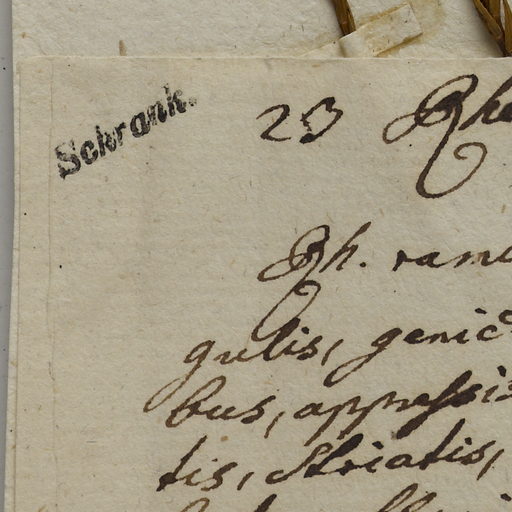 Schrank.
23 Rhe
Rh. ramu
gulis, genic
bus, appressis
tis, striatis,